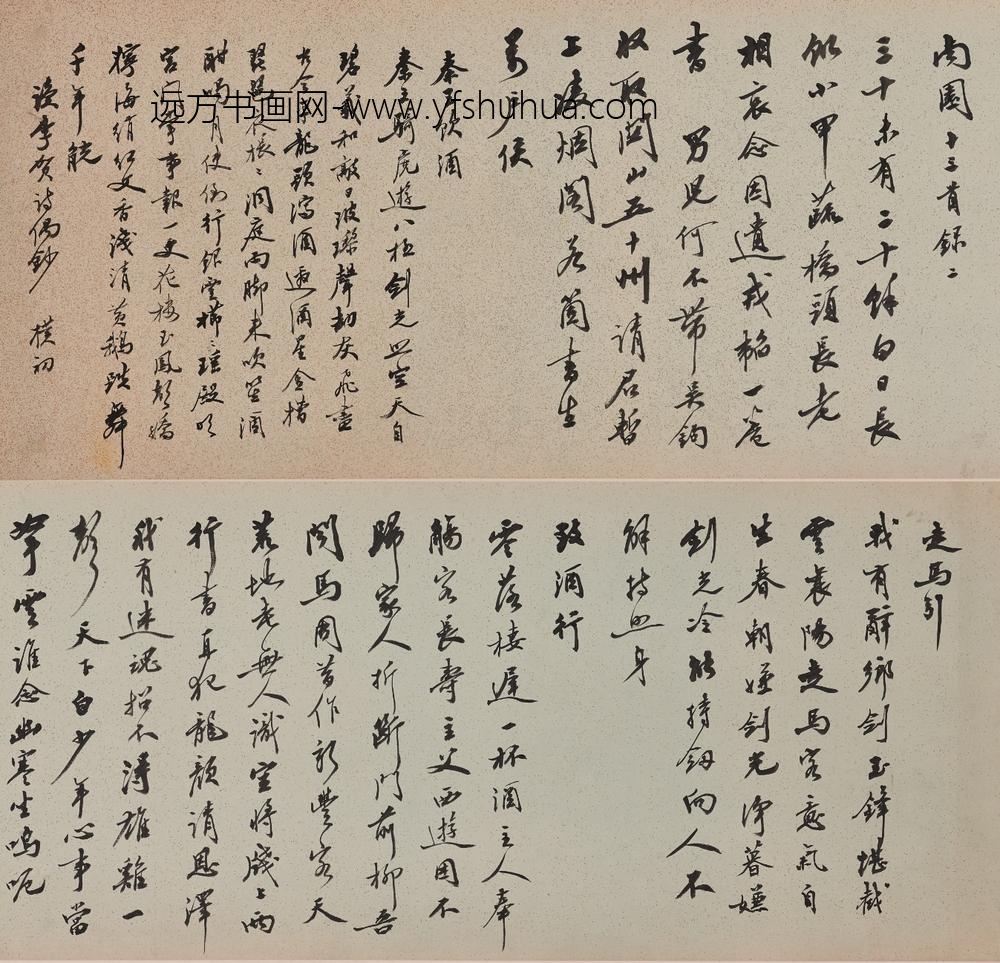 南園十三首錄二
三十未有二十餘白日長
飢小甲蔬橋頭長老
相哀念因遺戎韜一卷
書 男兒何不帶吳鉤
收取關山五十州請君暫
上凌煙閣若箇書生
萬戶侯
秦王飲酒
秦王騎虎遊八極劍光照空天自
碧羲和敲日玻瓈聲劫灰飛盡
古今平龍頭瀉酒邀酒星金槽
琵琶夜棖〻洞庭雨腳來吹笙酒
酣喝月使倒行銀雲櫛〻瑤殿明
宮門掌事報一更花樓玉鳳聲嬌
獰海綃紅文香淺清黃鵝跌舞
千年觥
讀李賀詩偶鈔 樸初
远方书画网-www.yfshuhua.com
走馬引
我有辭鄉劍玉鋒堪截
雲襄陽走馬客意氣自
生春朝嫌劍光淨暮嫌
劍光冷能持劍向人不
解持照身
致酒行
零落棲遲一杯酒主人奉
觴客長壽主父西遊困不
歸家人折斷門前柳吾
聞馬周昔作新豐客天
荒地老無人識空將牋上兩
行書直犯龍顏請恩澤
我有迷魂招不得雄雞一
聲天下白少年心事當
拏雲誰念幽寒坐嗚呃